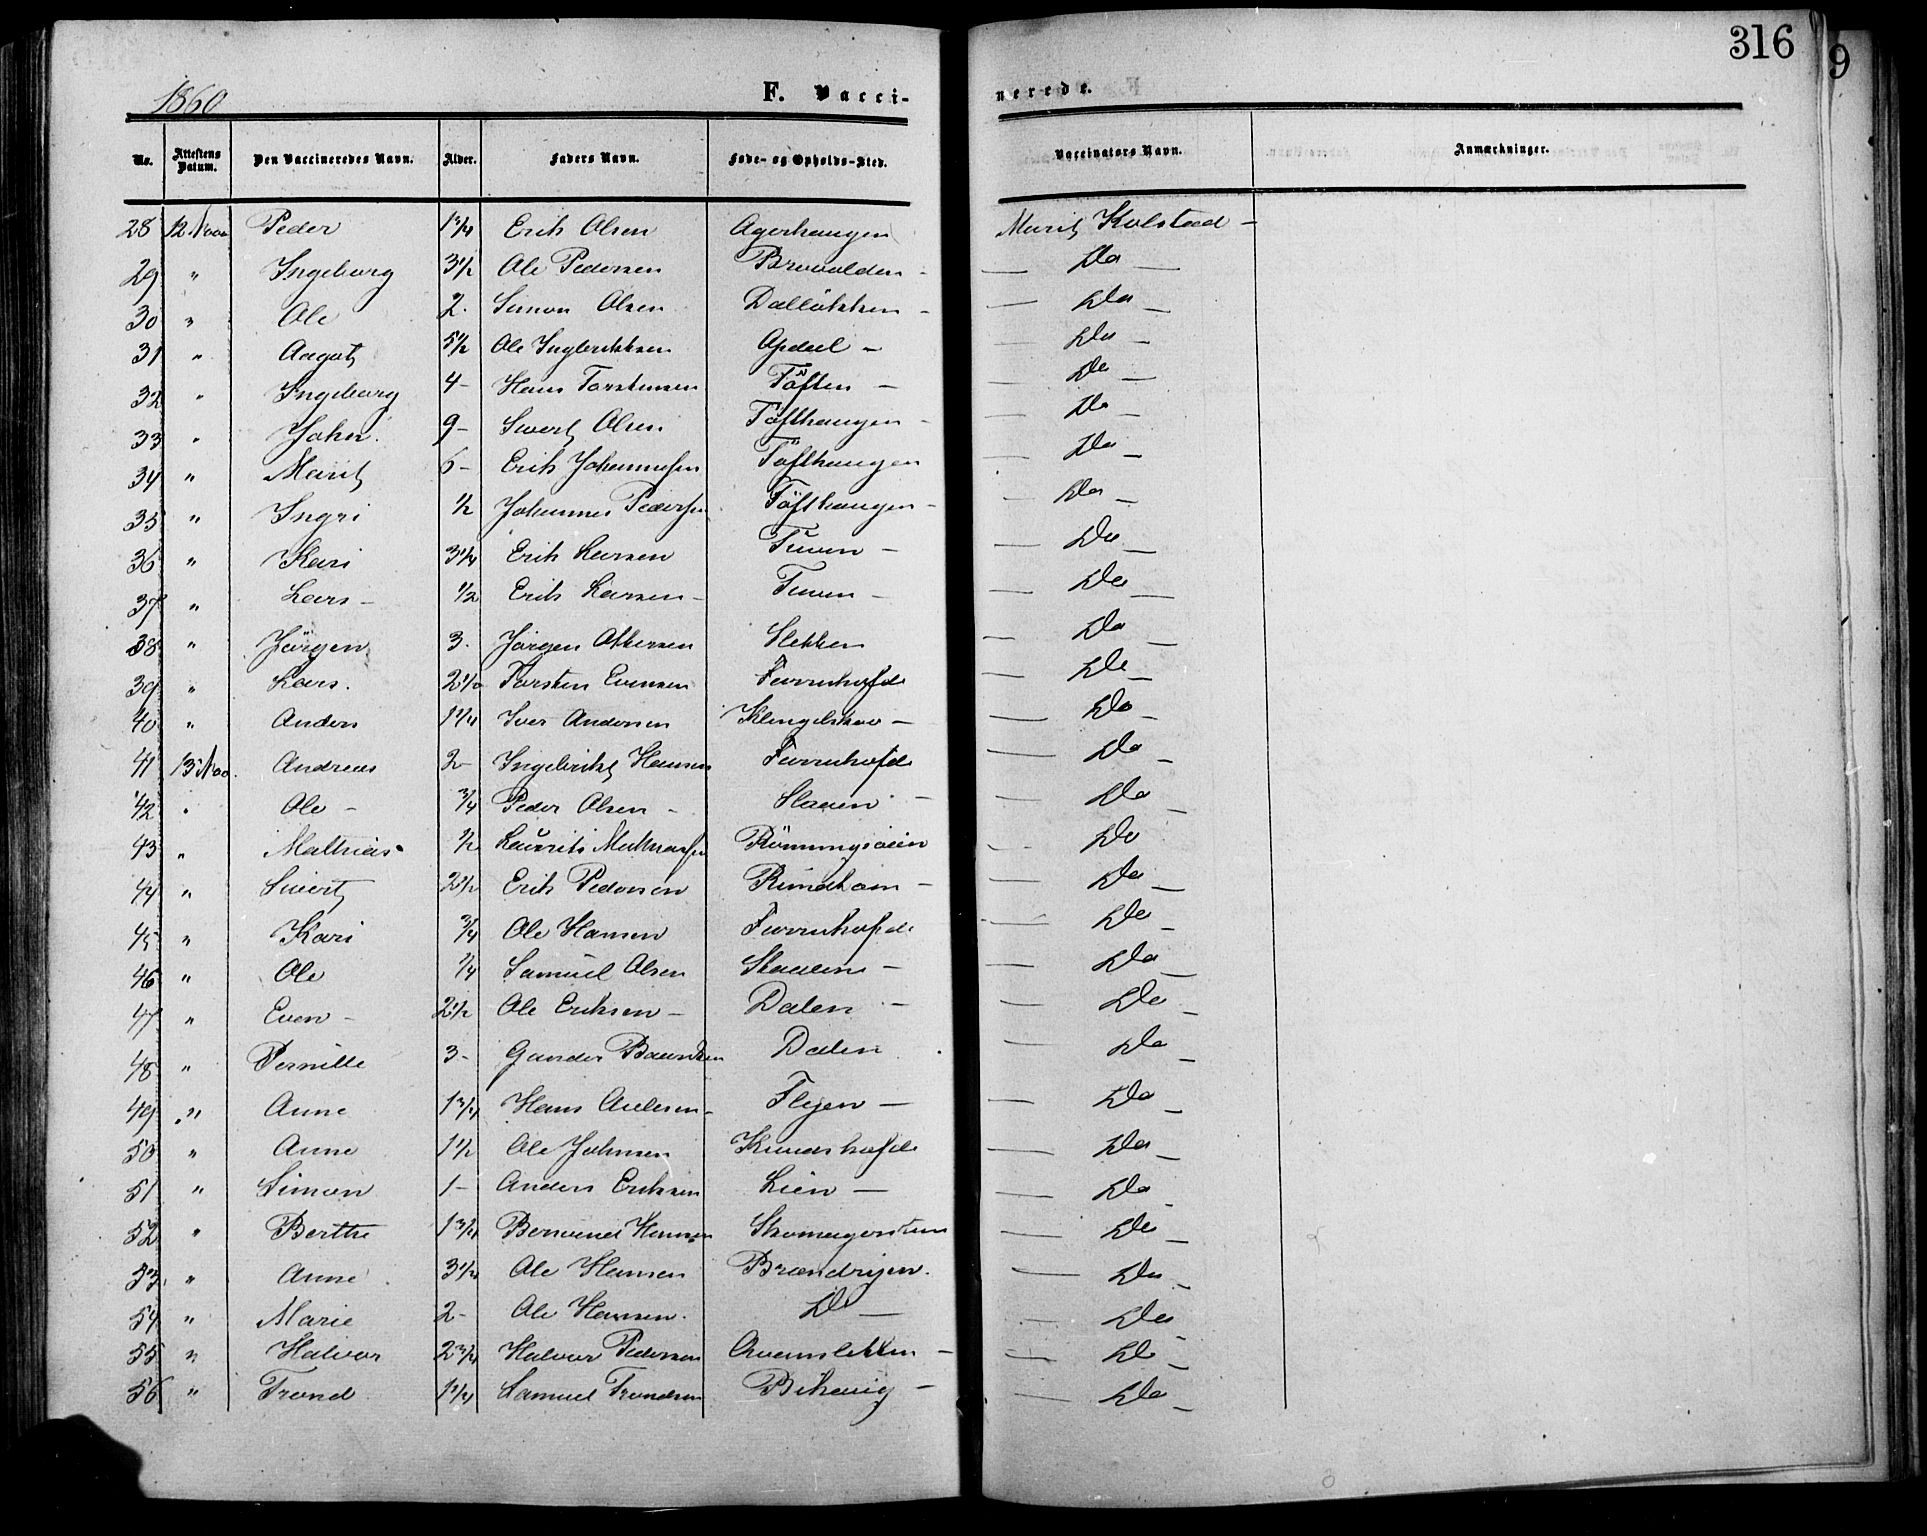 316
9
1860
F. Vacci-
nerede.
No. Attestens Datum. Den Vaccineredes Navn. Alder. Faders Navn. Føde- og Opholds-Sted. Vaccinators Navn. Anmærkninger.
28 12 Nov Peder 1 3/4 Erik Olsen Agerhaugen Marit Kolstad -
29 " Ingeborg 3 1/2 Ole Pedersen Brovolden - Do
30 " Ole 2. Simon Olsen Dalløkken - Do
31 " Aagot 5 1/2 Ole Ingebrikksen Opdal - Do
32 " Ingeborg 4 - Hans Torstensen Töften - Do
33 " John. 9 - Sivert Olsen Töfthaugen - Do
34 " Marit 6 - Erik Johannesen Töfthaugen Do
35 " Ingri 1/2 Johannes Pedersen Töfthaugen - Do
36 " Kari 3 1/4 Erik Larsen Tuven - Do
37 " Lars - 1/2 Erik Larsen - Tuven - Do
38 " Jörgen 3. Jörgen Slekken Do
39 " Lars. 2 1/2 Torsten Evensen Furruhofde Do
40 " Anders 1 1/4 Iver Andersen - Do
41 13 Nov. Andreas 2 - Ingebrikt Hansen Furruhofde Do
42 " Ole - 3/4 Peder Olsen - Slaaen - Do
43 " Mathias 1/2 Laurits Mathiasen Rönningsveien Do
44 " Sivert 2 1/2 Erik Pedersen - Do
45 " Kari 3/4 Ole Hansen Furruhofde Do
46 " Ole 1/4 Samuel Olsen - Do
47 " Even - 2 1/2 Ole Eriksen - Dalen - Do
48 " Pernille 3 - Gunder Dalen Do
49 " Anne 1 3/4 Hans Andersen - Flyen - Do
50 " Anne 1 1/2 Ole Johnsen Do
51 " Simon 1 - Anders Eriksen Lien - Do
52 " Berthe 1 3/4 Hansen Do
53 " Anne 3 1/4 Ole Hansen Brændryen. Do
54 " Marie 2 - Ole Hansen. Do - Do
55 " Halvor 2 3/4 Halvor Pedersen Qvamslekken - Do
56 " Trond 1 1/4 Samuel Trondsen - Do